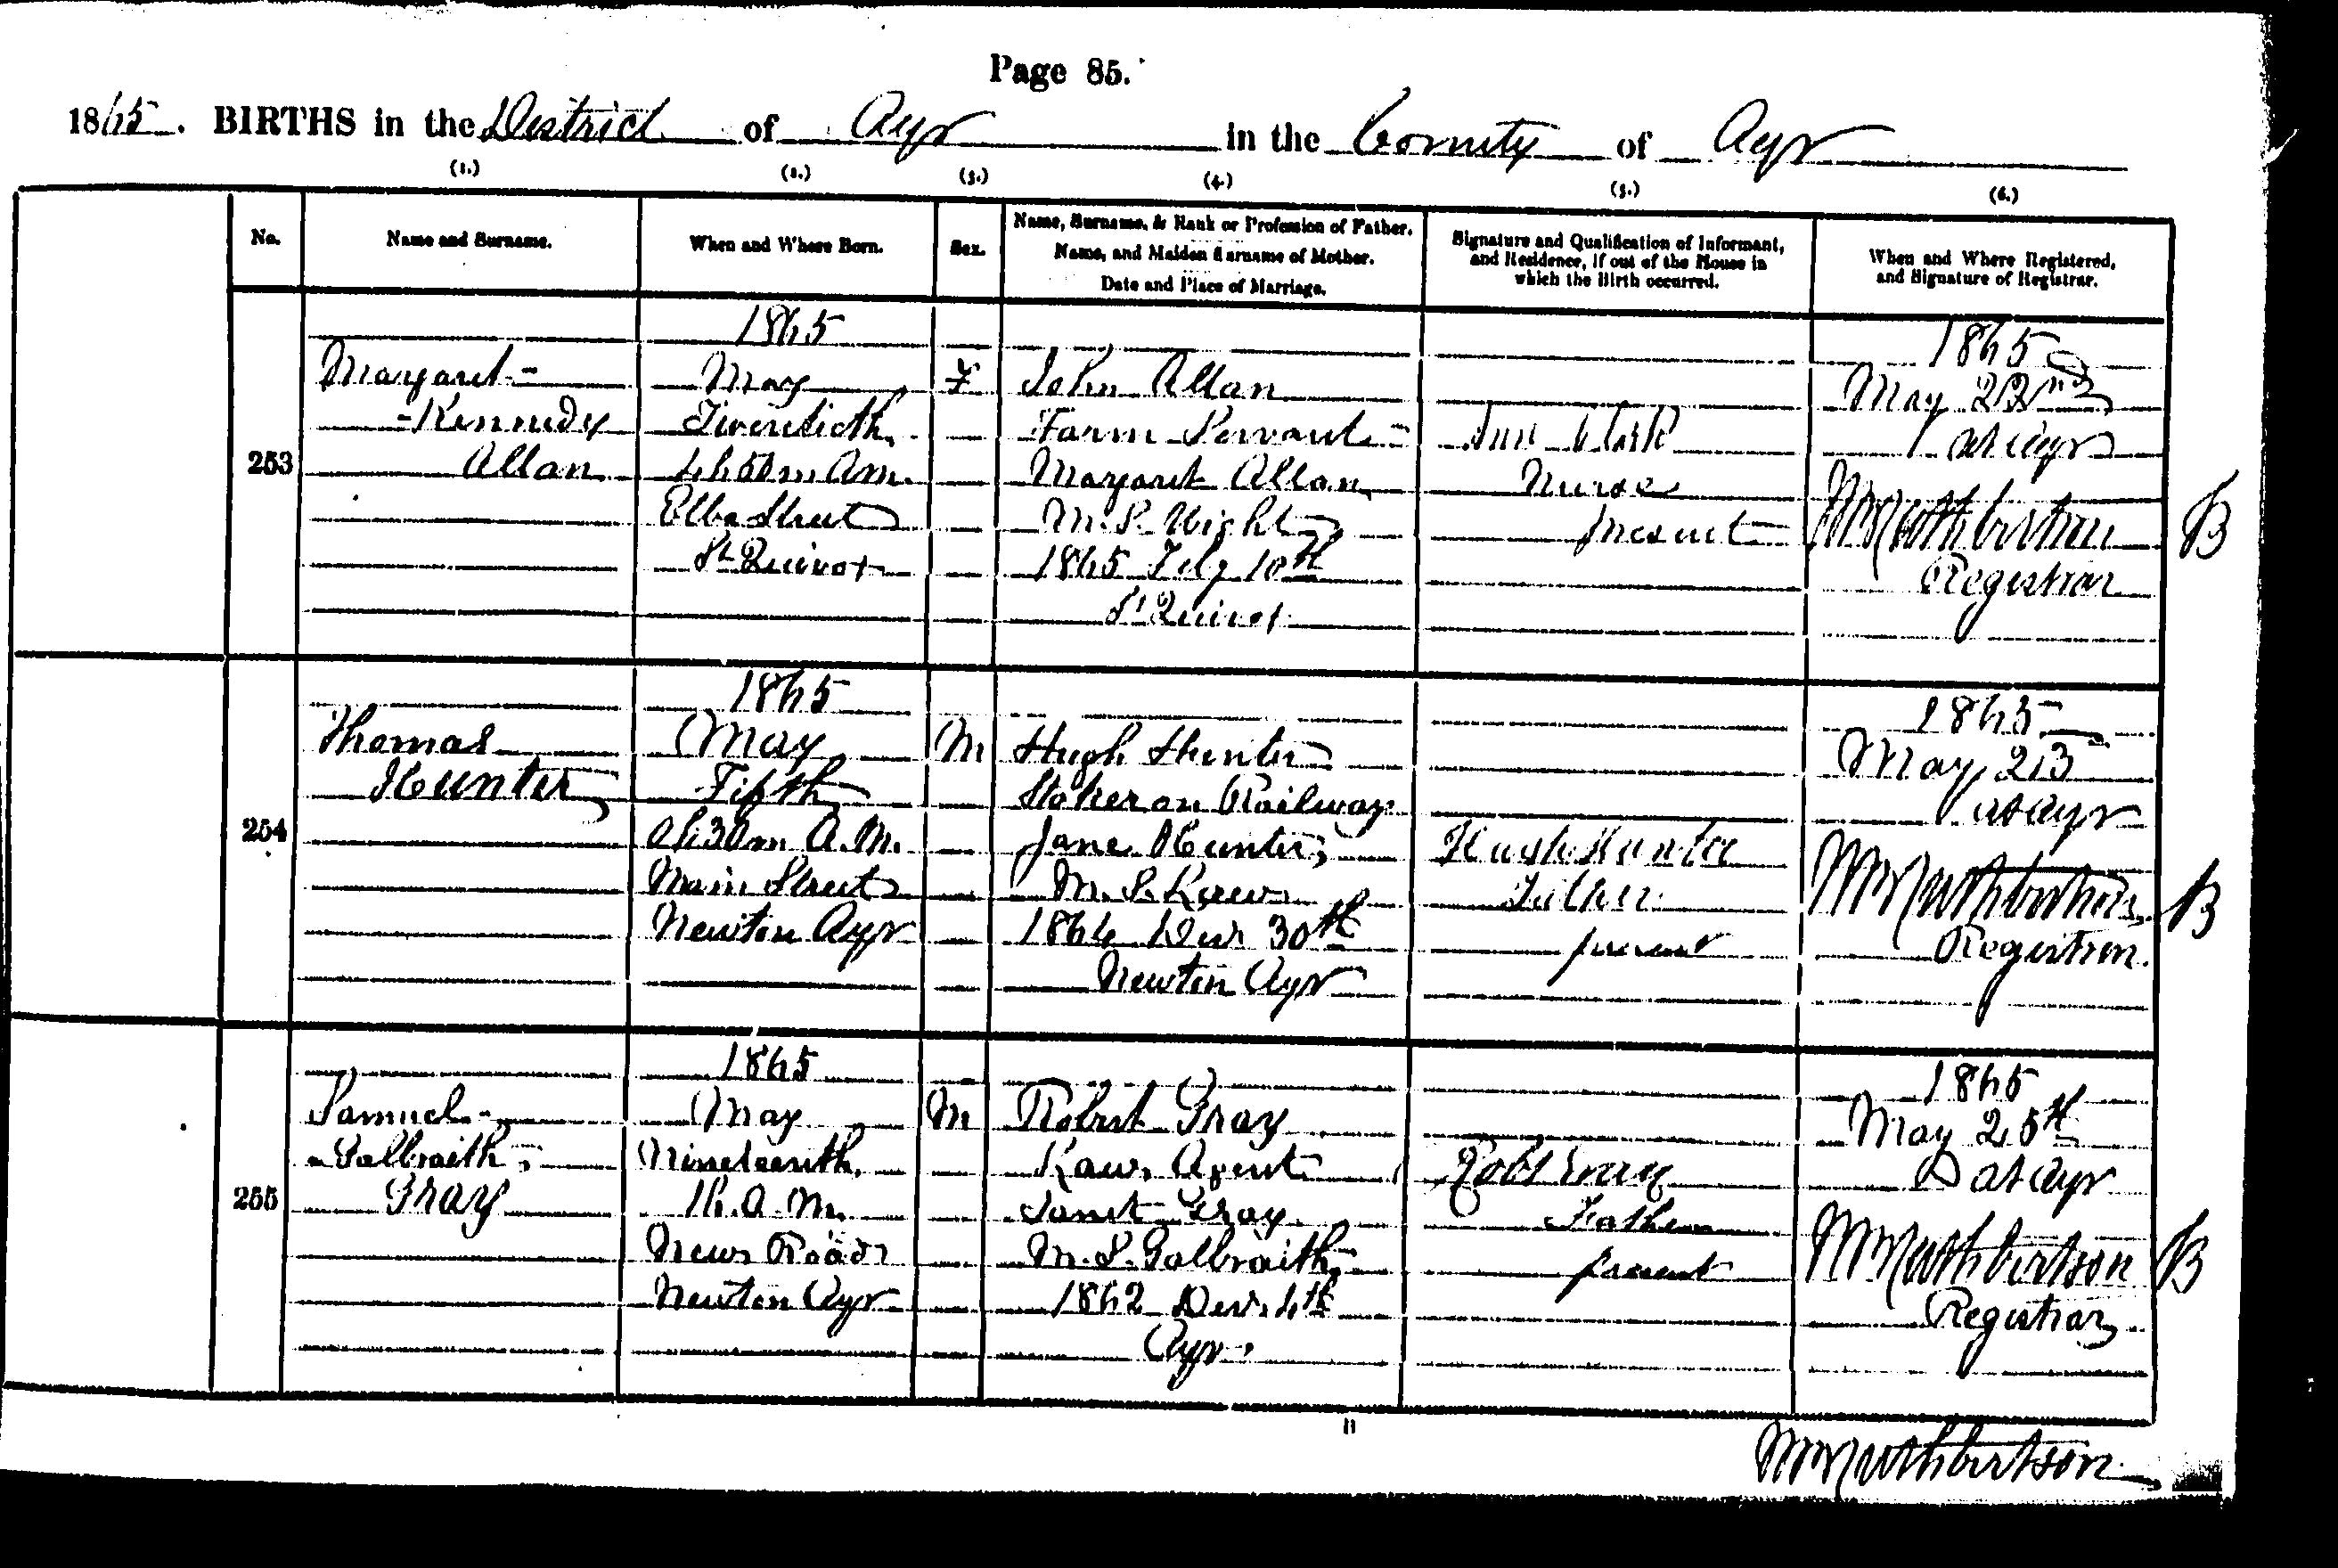 Page 85.
1865. BIRTHS in the District of Ayr in the County of Ayr
(1.) (2.) (3.) (4.) (5.) (6.)
No.
Name and Surname.
When and Where Born.
Sex.
Name, Surname, & Rank or Profession of Father.
Name, and Maiden Surname of Mother.
Date and Place of Marriage.
Signature and Qualification of Informant,
and Residence, if out of the House in
which the Birth occurred.
When and Where Registered,
and Signature of Registrar.
253
Margaret-
-Kennedy
Allan
1865
May
Twentieth,
4h 50m A.M.
Elba Street
St Quivox
F
John Allan
Farm Servant
Margaret Allan
M.S. Wight
1865 Feby 10th
St Quivox
Ann Clark
Nurse
present
1865
May 22nd
at Ayr
Cuthbertson
Registrar
B
254
Thomas
Hunter
1865
May
Fifth
0h 30m A.M.
Main Street
Newton Ayr
M
Hugh Hunter
Stoker on Railway
Jane Hunter,
M.S.
1864 Decr 30th
Newton Ayr
Hugh Hunter
Father
present
1865
May 23
at Ayr
Cuthbertson
Registrar
B
255
Samuel-
-Galbraith,
Gray
1865
May
Nineteenth,
1h. A.M.
New Road
Newton Ayr
M
Robert Gray
Law Agent
Janet Gray
M.S. Galbraith,
1862 Decr 4th
Ayr.
Robt Gray
Father
present
1865
May 25th
at Ayr
Cuthbertson
Registrar
B
Cuthbertson